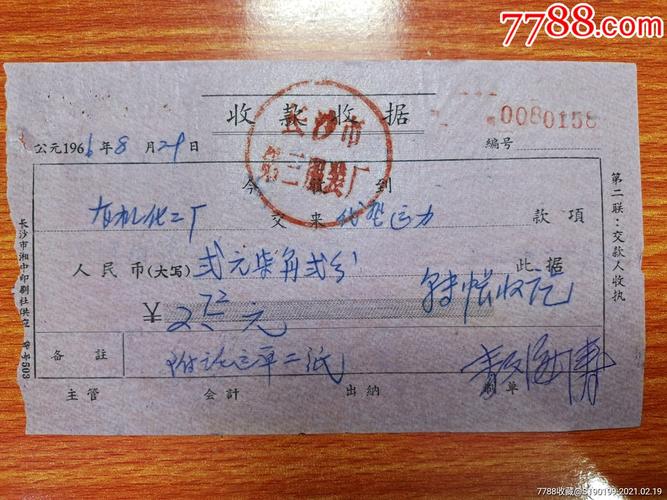 7788.com
收款收据
长沙市
第三服装厂
0080158
公元1966年8月29日
编号
今收到
有机化工厂 交来 代垫运力 款项
人民币(大写) 贰元柒角贰分 此据
¥ 2.72元 转帐收讫
备註 附 单二纸
主管 会计 出纳 制单
第二联:交款人收执
长沙市湘中印刷社供应
503
7788收藏@S190199,2021.02.19